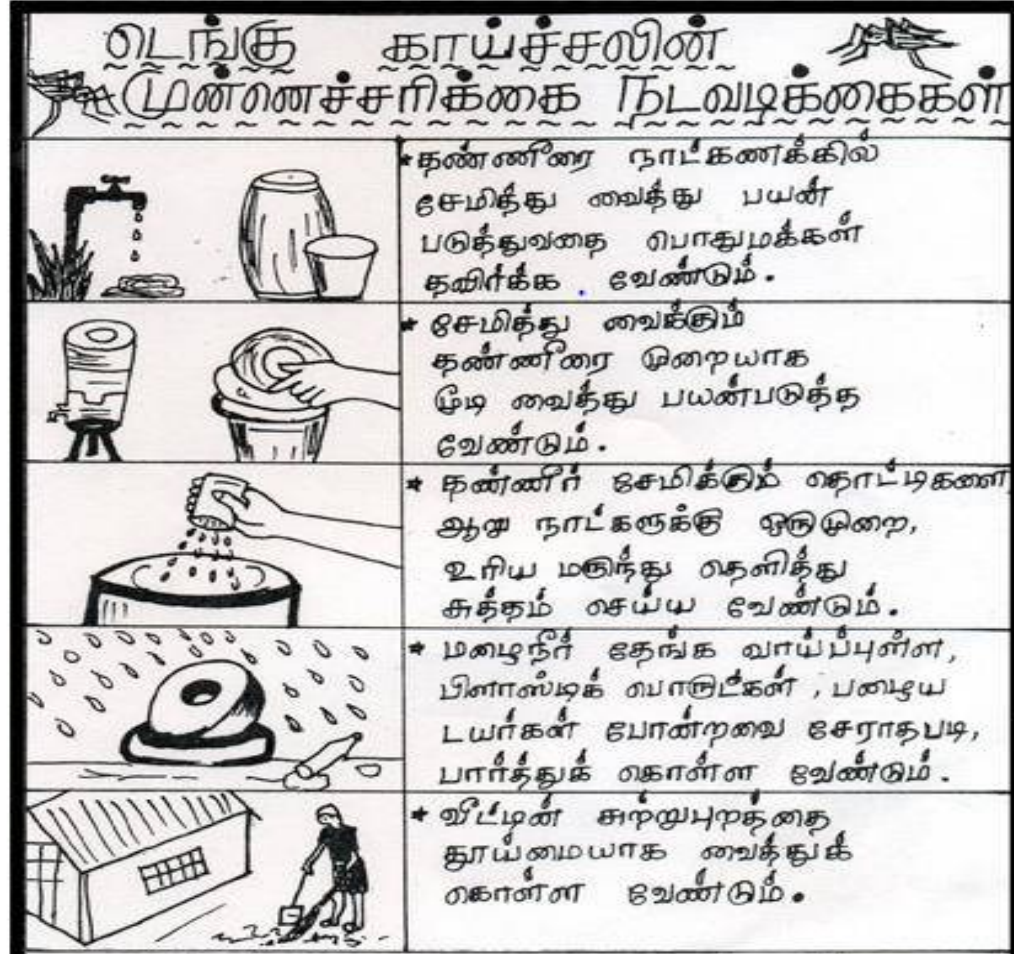 டெங்கு காய்ச்சலின்
முன்னெச்சரிக்கை நடவடிக்கைகள்
* தண்ணீரை நாட்கணக்கில்
சேமித்து வைத்து பயன்
படுத்துவதை பொதுமக்கள்
தவிர்க்க வேண்டும்.
* சேமித்து வைக்கும்
தண்ணீரை முறையாக
மூடி வைத்து பயன்படுத்த
வேண்டும்.
* தண்ணீர் சேமிக்கும் தொட்டிகளை,
ஆறு நாட்களுக்கு ஒருமுறை,
உரிய மருந்து தெளித்து
சுத்தம் செய்ய வேண்டும்.
* மழைநீர் தேங்க வாய்ப்புள்ள,
பிளாஸ்டிக் பொருட்கள், பழைய
டயர்கள் போன்றவை சேராதபடி,
பார்த்துக் கொள்ள வேண்டும்.
* வீட்டின் சுற்றுபுறத்தை
தூய்மையாக வைத்துக்
கொள்ள வேண்டும்.